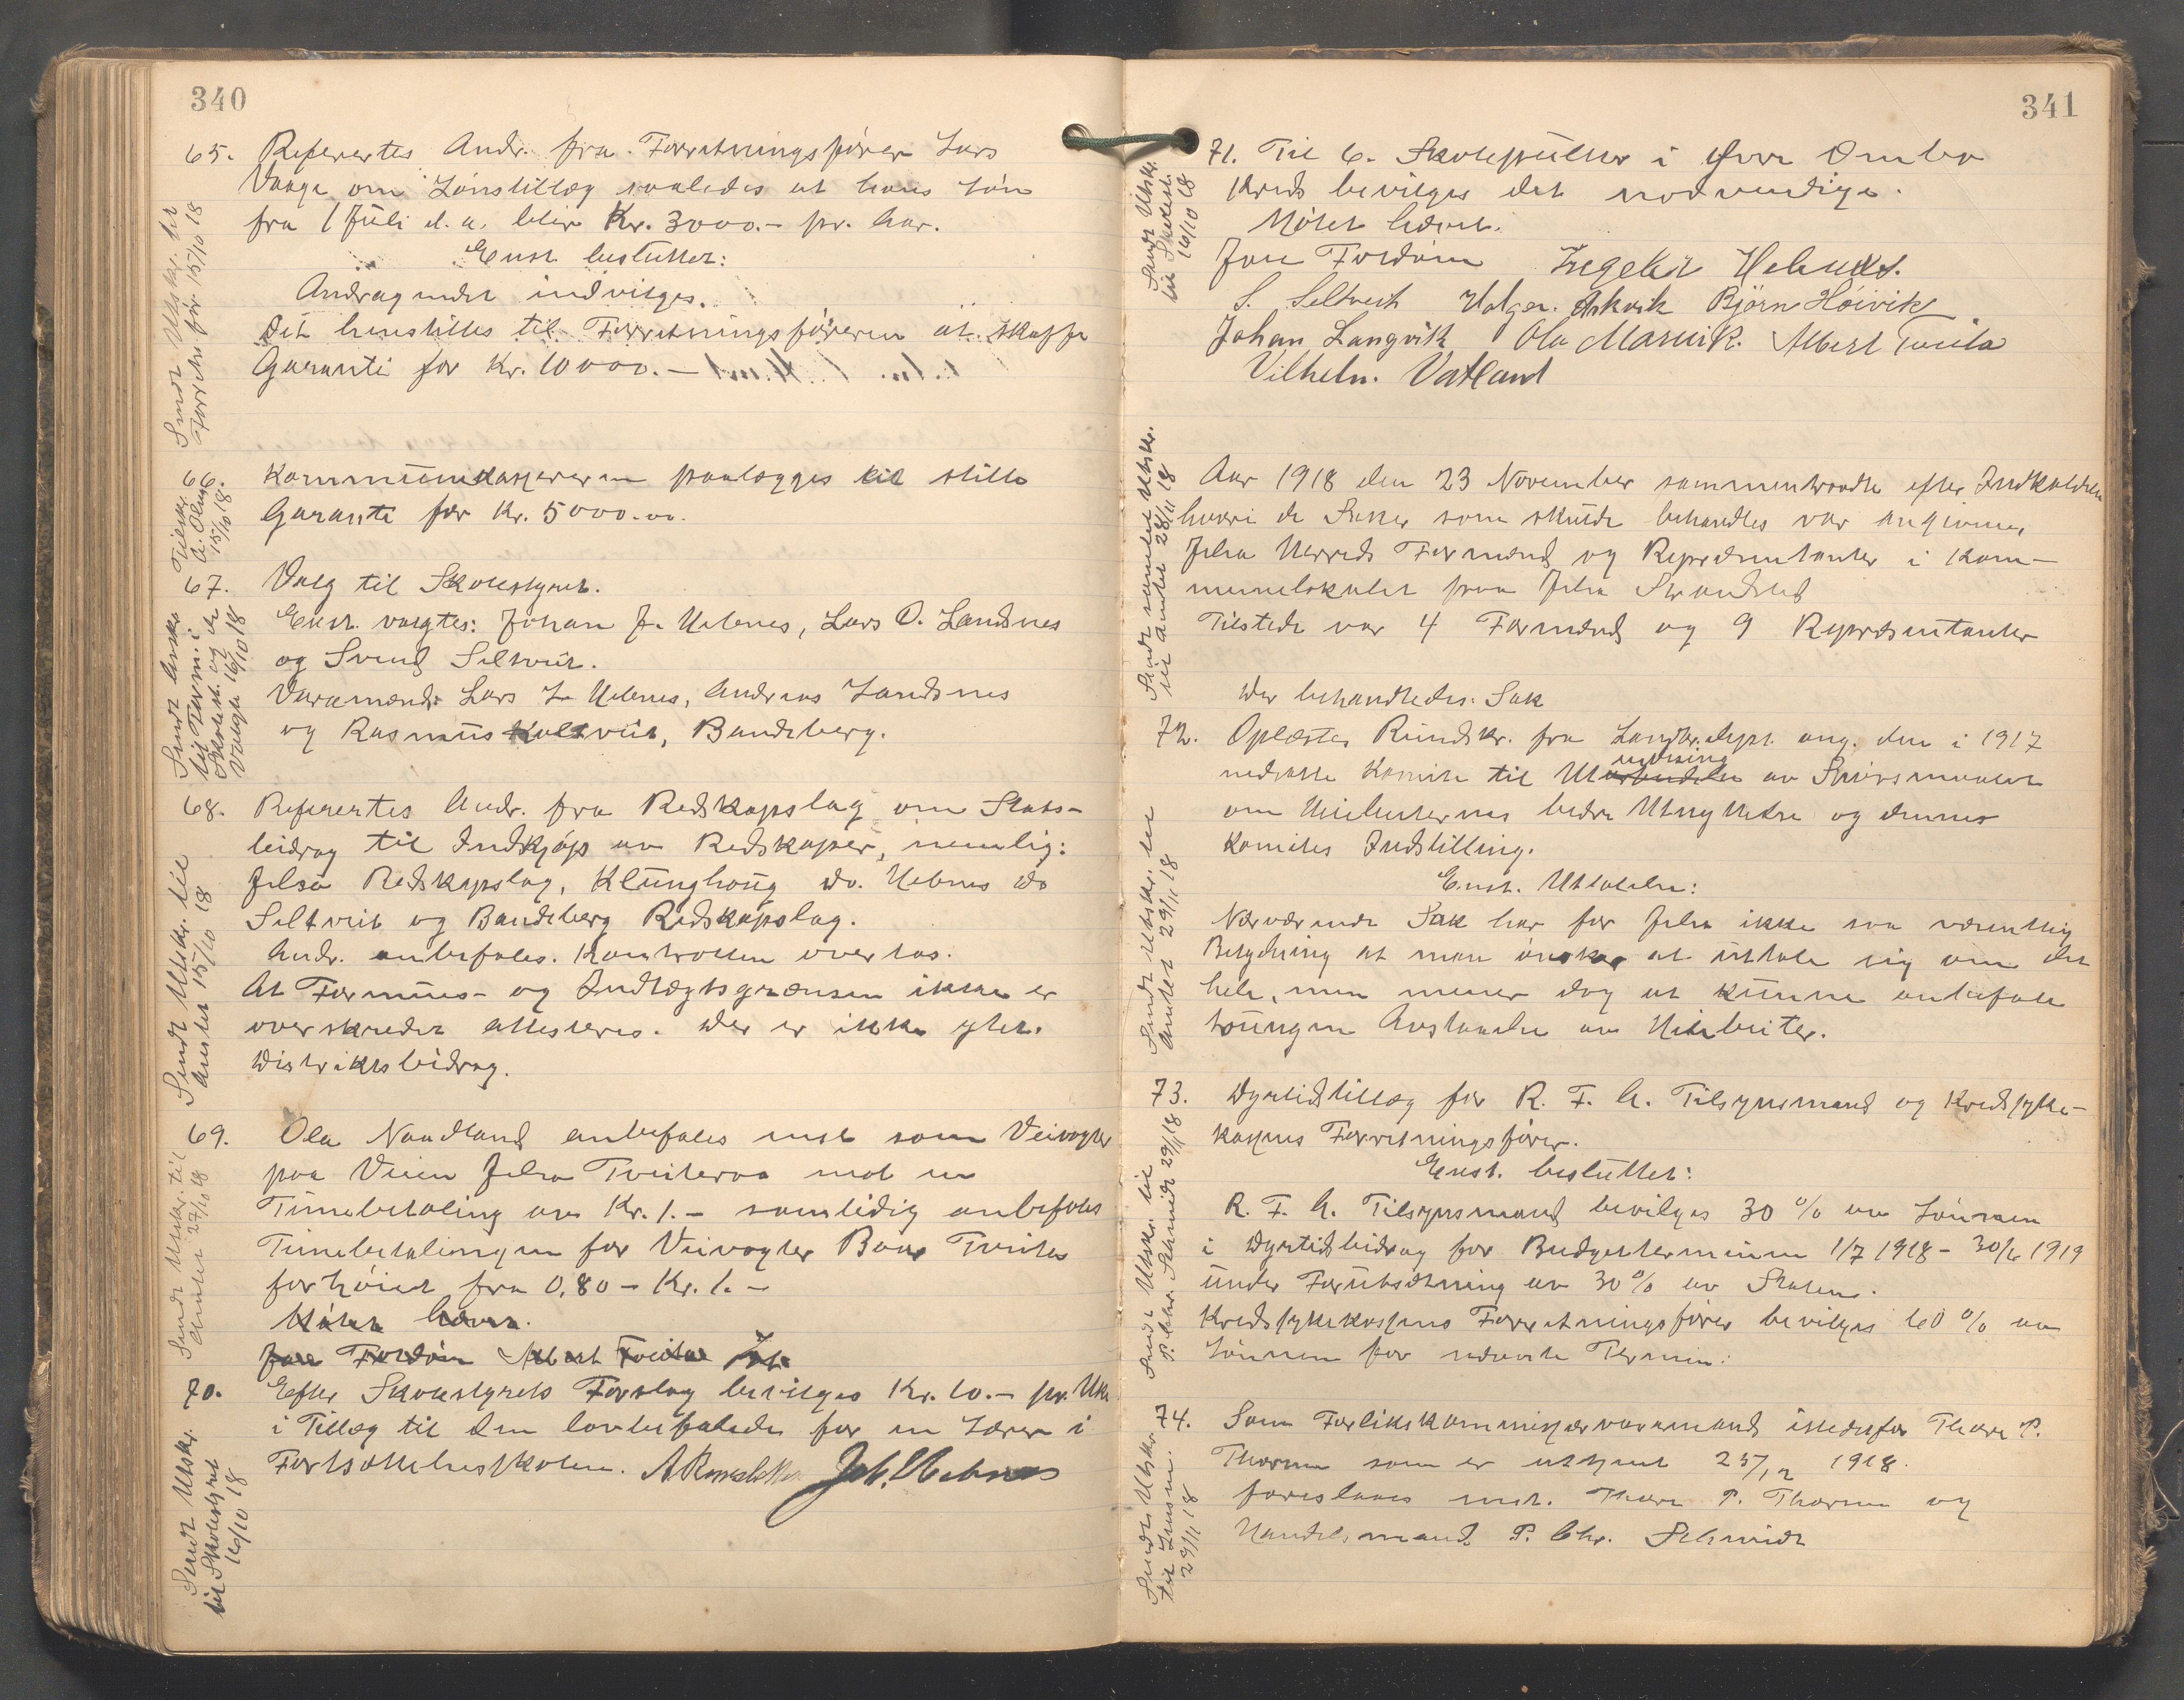 340
65. Refereertes Andr. fra Forretningsfører Lars
Vaage om Lönstillæg saaledes at hans Lön
fra 1 Juli d. a. blir Kr. 3000.- pr. Aar.
Enst. besluttet:
Andragendet indvilges.
Det henstilles til Forretningsføreren at skaffe
Garanti for Kr. 10000.-
Sendt Utskr. til
Forr.för 15/10 18
66. Kommunekassereren paalægges at stille
Garanti for Kr. 5000.00.
15/10 18
67. Valg til Skolestyret.
Enst. valgtes: Johan J. Hebnes, Lars O. Landsnes
og Svend Seltveit.
Varamænd: Lars L. Hebnes, Andreas Landsnes
og Rasmus Kaltveit, Bandeberg.
til Form. i
Skolest. og de
Valgte 16/10 18
68. Refereertes Andr. fra Redskapslag om Stats-
bidrag til Indkjøp av Redskaper, nemlig:
Jelsa Redskapslag, Klunghaug do. Hebnes do
Seltveit og Bandeberg Redskapslag.
Andr. anbefales. Kontrollen overtas.
At Formues- og Indtægtsgrænsen ikke er
overskredet attesteres. Der er ikke ytet
Distriktsbidrag.
Sendt Utskr. til
Amtet 15/10 18
69. Ola Naadland anbefales enst som Veivogter
paa Veien Jelsa Tveiteraa mot en
Timebetaling av Kr. 1.- samtidig anbefales
Timebetalingen for Veivogter Baar Tveita
forhöiet fra 0,80 - Kr. 1.-
Mötet hævet.
Jone Foldöin Albert Tveita Joh.
Sendt Utskr. til
Amtet 27/10 18
70. Efter Skolestyrets Forslag bevilges Kr. 10.- pr. Uke
i Tillæg til den lovbefalede for en Lærer i
Fortsættelsesskolen. Joh. Hebnes
Sendt Utskr.
til Skolestyret
16/10 18
341
71. Til 6. Skolepulter i Ombo
Kreds bevilges det nødvendige.
Mötet hævet.
Jone Foldöin Ingebr. Hebnes.
S. Seltveit Holger. Askvik Björn Höivik
Johan Langvik Ola Marvik. Albert Tveita
Vilhelm. Vatland
Sendt Utskr.
til Skolest.
16/10 18
Aar 1918 den 23 November sammentraadte efter Indkaldelse
hvori de Saker som skulde behandles var angivne,
Jelsa Herreds Formænd og Repræsentanter i Kom-
munelokalet paa Jelsa Strandsted
Tilstede var 4 Formænd og 9 Repræsentanter
Sendt samlet Utskr.
til Amtet 28/11 18
Der behandledes: Sak
72. Oplæstes Rundskr. fra Landbr.dept. ang. den i 1917
nedsatte Komite til Utredning av Spörsmaalet
om Utnyttelse og dennes
Komites Indstilling.
Enst. Uttalelse:
Nærværende Sak har for Jelsa ikke saa væsentlig
Betydning at man önsker at uttale sig om det
hele, men mener dog at kunne anbefale
tvungen Avstaaelse av
Sendt Utskr. til
Amtet 29/11 18
73. Dyrtidstillæg for R. F. A. Tilsynsmand og Kredssyke-
kassens Forretningsfører.
Enst. besluttet:
R. F. A. Tilsynsmand bevilges 30 % av Lönnen
i Dyrtidsbidrag for Budgetterminen 1/7 1918 - 30/6 1919
under Forutsætning av 30 % av Staten.
Kredssykekassens Forretningsfører bevilges 60 % av
Lönnen for nævnte Termin.
Sendt Utskr. til
P. Chr. Schmidt 29/11 18
74. Som Forlikskommissærvaramand istedetfor Thore P.
Thorsen som er uttjent 25/12 1918.
foreslaaes enst. Thore P. Thorsen og
Handelsmand P. Chr. Schmidt
Sendt Utskr.
til Lensm.
29/11 18